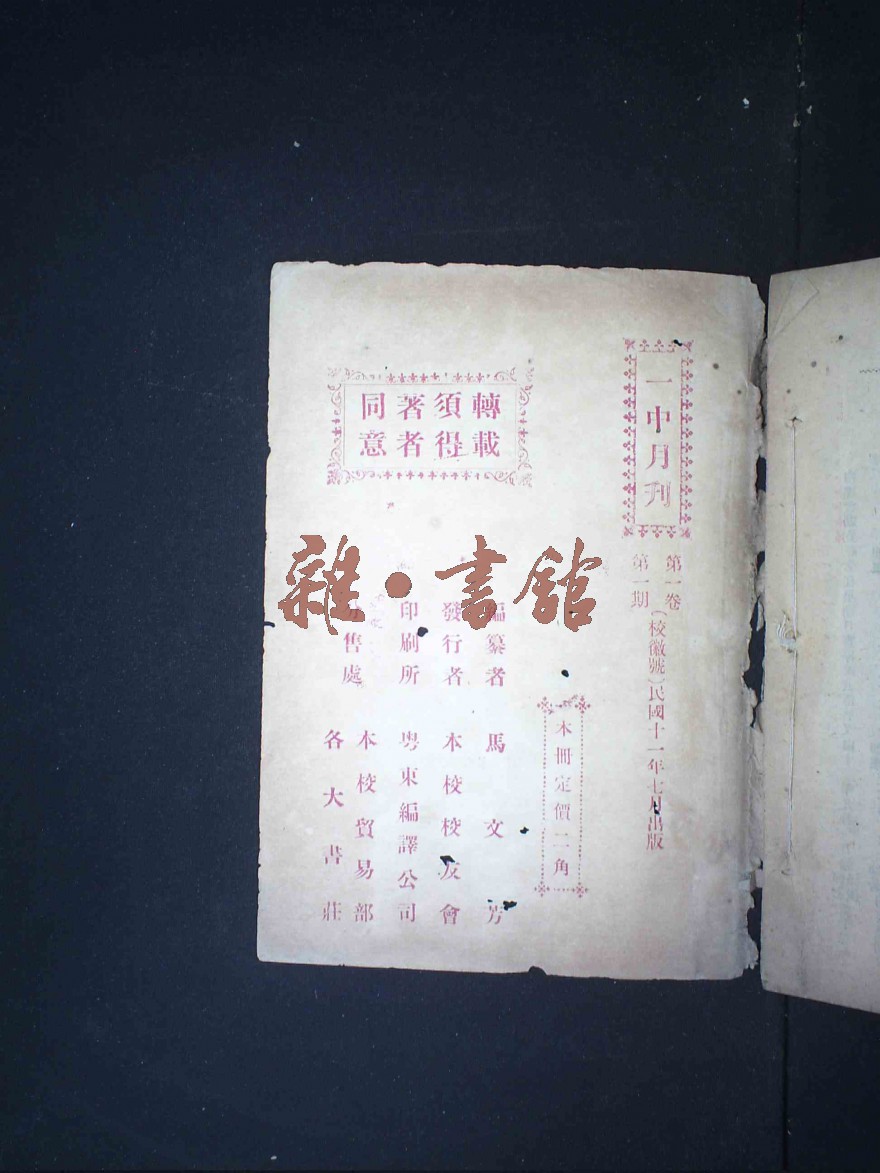 一中月刊
第一卷
第一期
(校徽號)民國十一年七月出版
本冊定價二角
轉載
須得
著者
同意
編纂者 馬文芳
發行者 本校校友會
印刷所 粵東編譯公司
分售處 本校貿易部
各大書莊
雜·書館